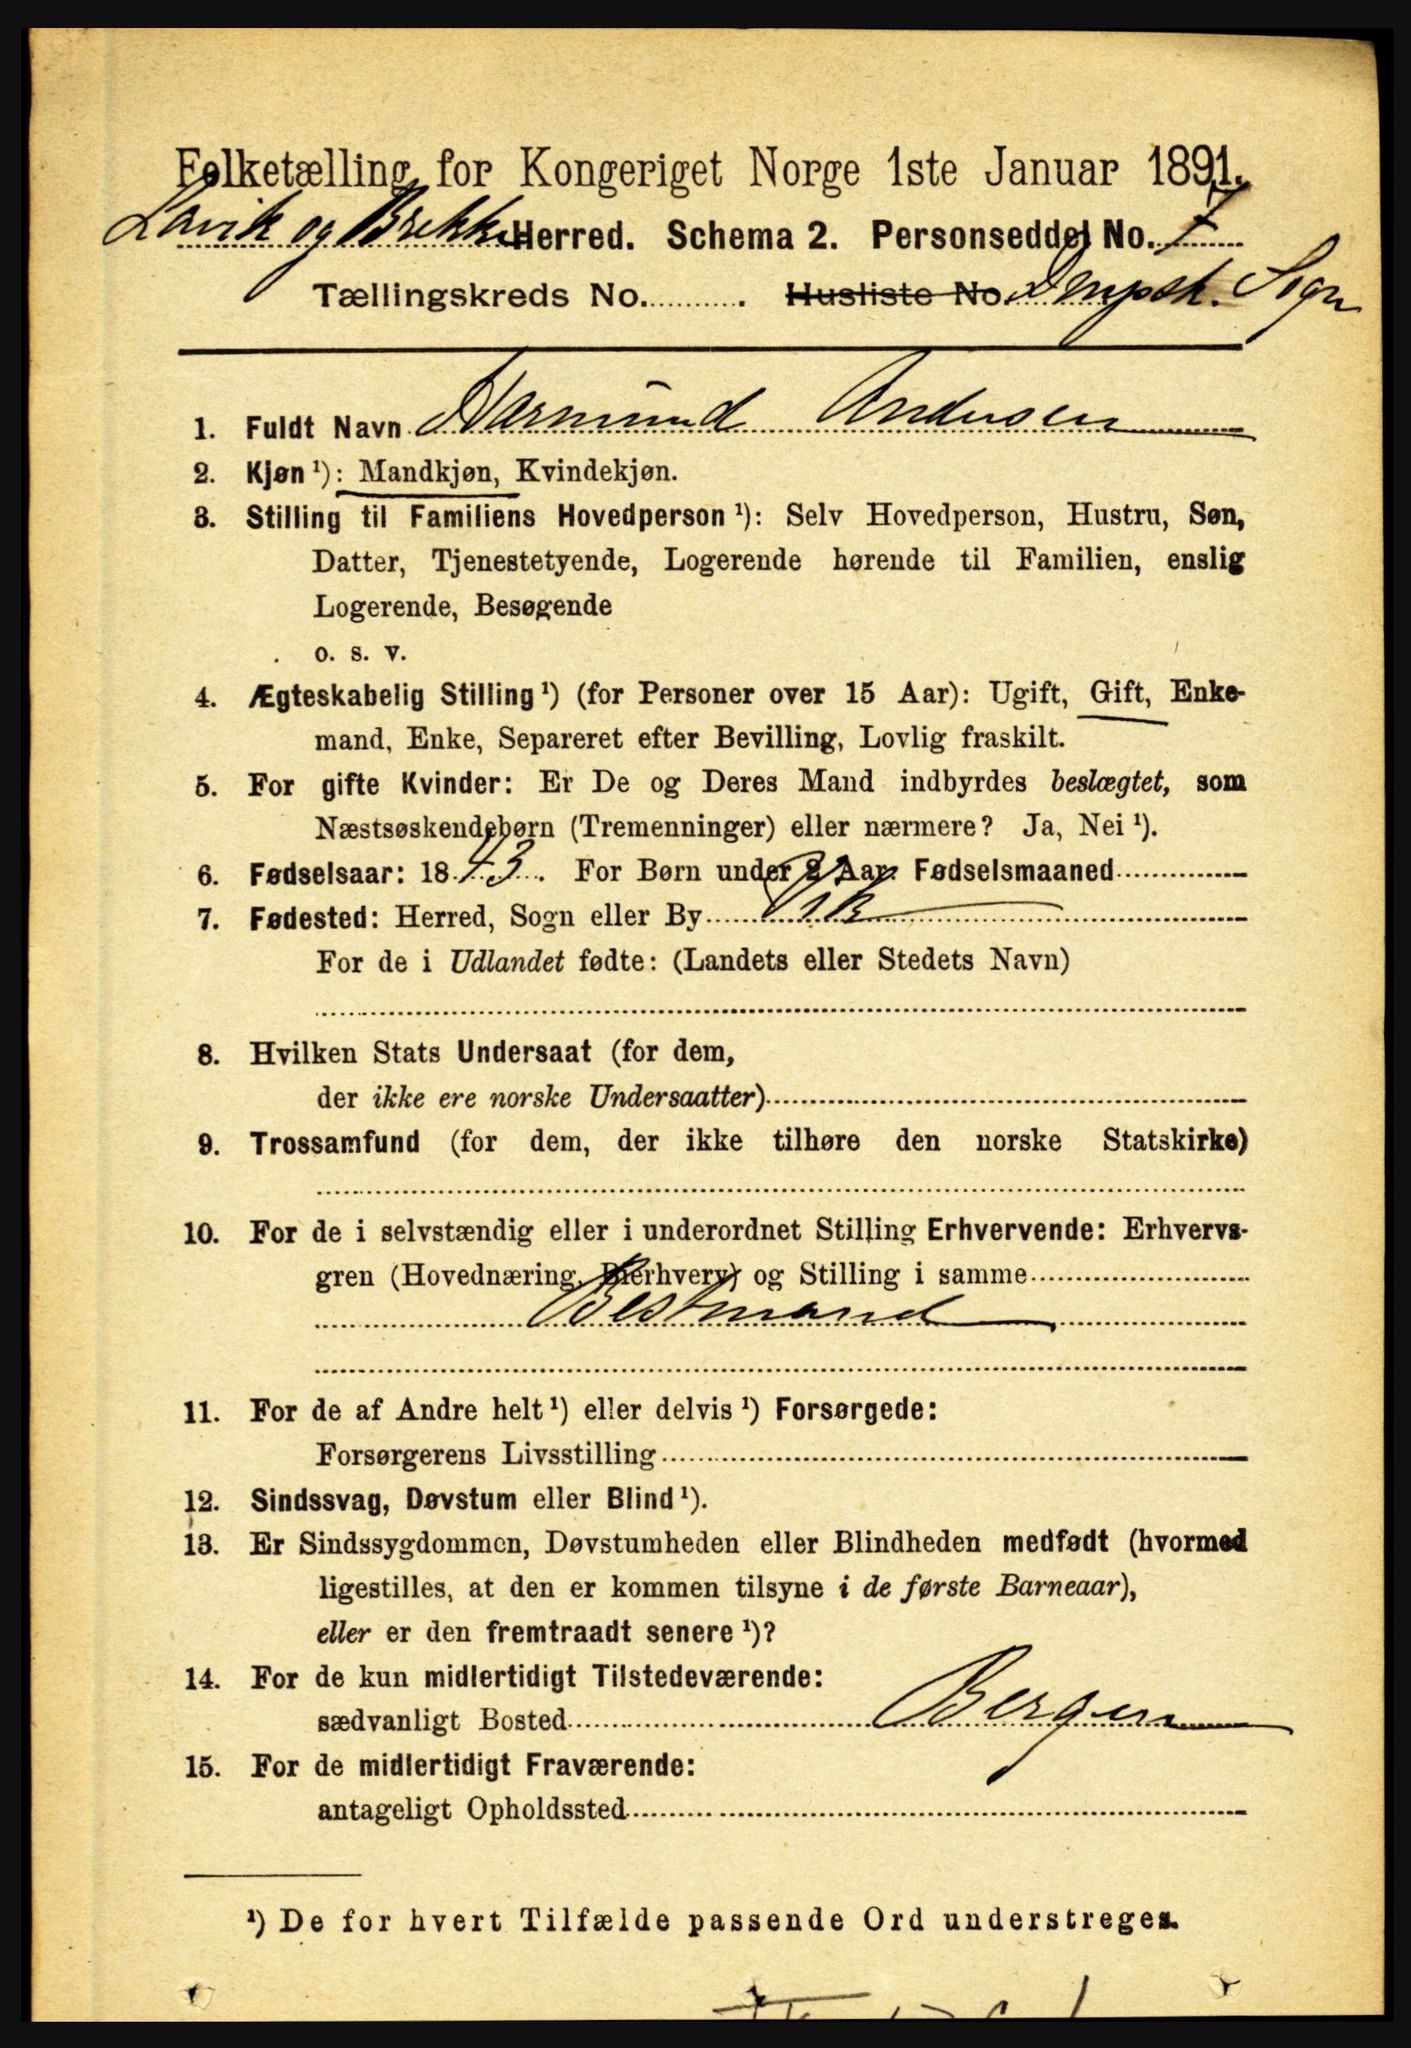 Folketælling for Kongeriget Norge 1ste Januar 1891.
Lavik og Brekke Herred. Schema 2. Personseddel No. 7
Tællingskreds No. . Husliste No Dmpsk. Sogn
1. Fuldt Navn Normund Andersen
2. Kjøn ¹): Mandkjøn, Kvindekjøn.
3. Stilling til Familiens Hovedperson ¹): Selv Hovedperson, Hustru, Søn,
Datter, Tjenestetyende, Logerende hørende til Familien, enslig
Logerende, Besøgende
o. s. v.
4. Ægteskabelig Stilling ¹) (for Personer over 15 Aar): Ugift, Gift, Enke-
mand, Enke, Separeret efter Bevilling, Lovlig fraskilt.
5. For gifte Kvinder: Er De og Deres Mand indbyrdes beslægtet, som
Næstsøskendebørn (Tremenninger) eller nærmere? Ja, Nei ¹).
6. Fødselsaar: 1843. For Børn under 2 Aar: Fødselsmaaned
7. Fødested: Herred, Sogn eller By Vik
For de i Udlandet fødte: (Landets eller Stedets Navn)
8. Hvilken Stats Undersaat (for dem,
der ikke ere norske Undersaatter)
9. Trossamfund (for dem, der ikke tilhøre den norske Statskirke)
10. For de i selvstændig eller i underordnet Stilling Erhvervende: Erhvervs-
gren (Hovednæring, Bierhverv) og Stilling i samme
Bestmand
11. For de af Andre helt ¹) eller delvis ¹) Forsørgede:
Forsørgerens Livsstilling
12. Sindssvag, Døvstum eller Blind ¹).
13. Er Sindssygdommen, Døvstumheden eller Blindheden medfødt (hvormed
ligestilles, at den er kommen tilsyne i de første Barneaar),
eller er den fremtraadt senere ¹)?
14. For de kun midlertidigt Tilstedeværende:
sædvanligt Bosted Bergen
15. For de midlertidigt Fraværende:
antageligt Opholdssted
¹) De for hvert Tilfælde passende Ord understreges.